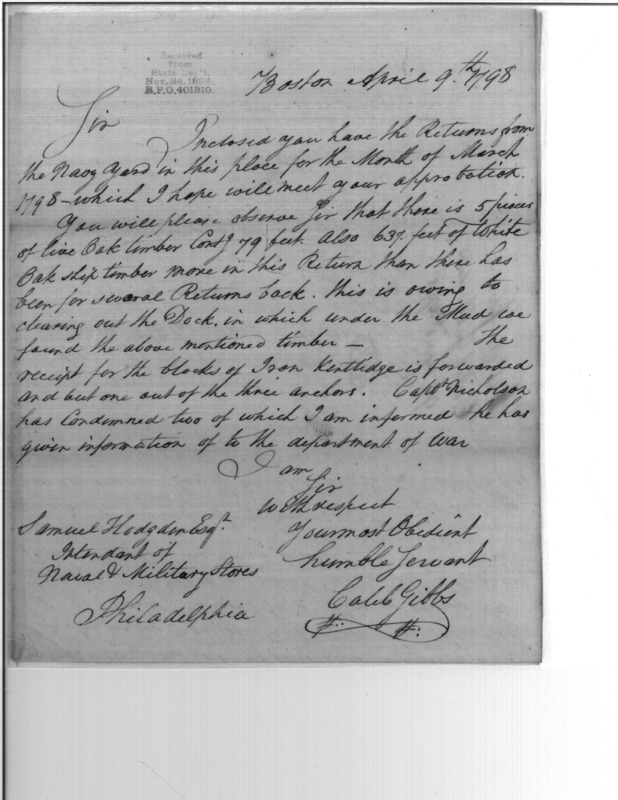 Received
from
State Dep't.
Nov. 24, 1894.
R.P.O. 401310.
Boston April 9.th 1798
Sir
Inclosed you have the Returns from
the Navy Yard in this place for the Month of March
1798 - which I hope will meet your approbation.
You will please observe Sir that there is 5 pieces
of live Oak timber Contg 79 feet. Also 637 feet of White
Oak ship timber more in this Return than there has
been for several Returns back. this is owing to
clearing out the Dock. in which under the Mud we
found the above mentioned timber — The
receipt for the blocks of Iron Kentledge is forwarded
and but one out of the three anchors. Capt. Nicholson
has Condemned two of which I am informed he has
given information of to the department of War
I am
Sir
with respect
Your most Obedient
humble Servant
Caleb Gibbs
Samuel Hodgdon Esqr.
Intendant of
Naval & Military Stores
Philadelphia